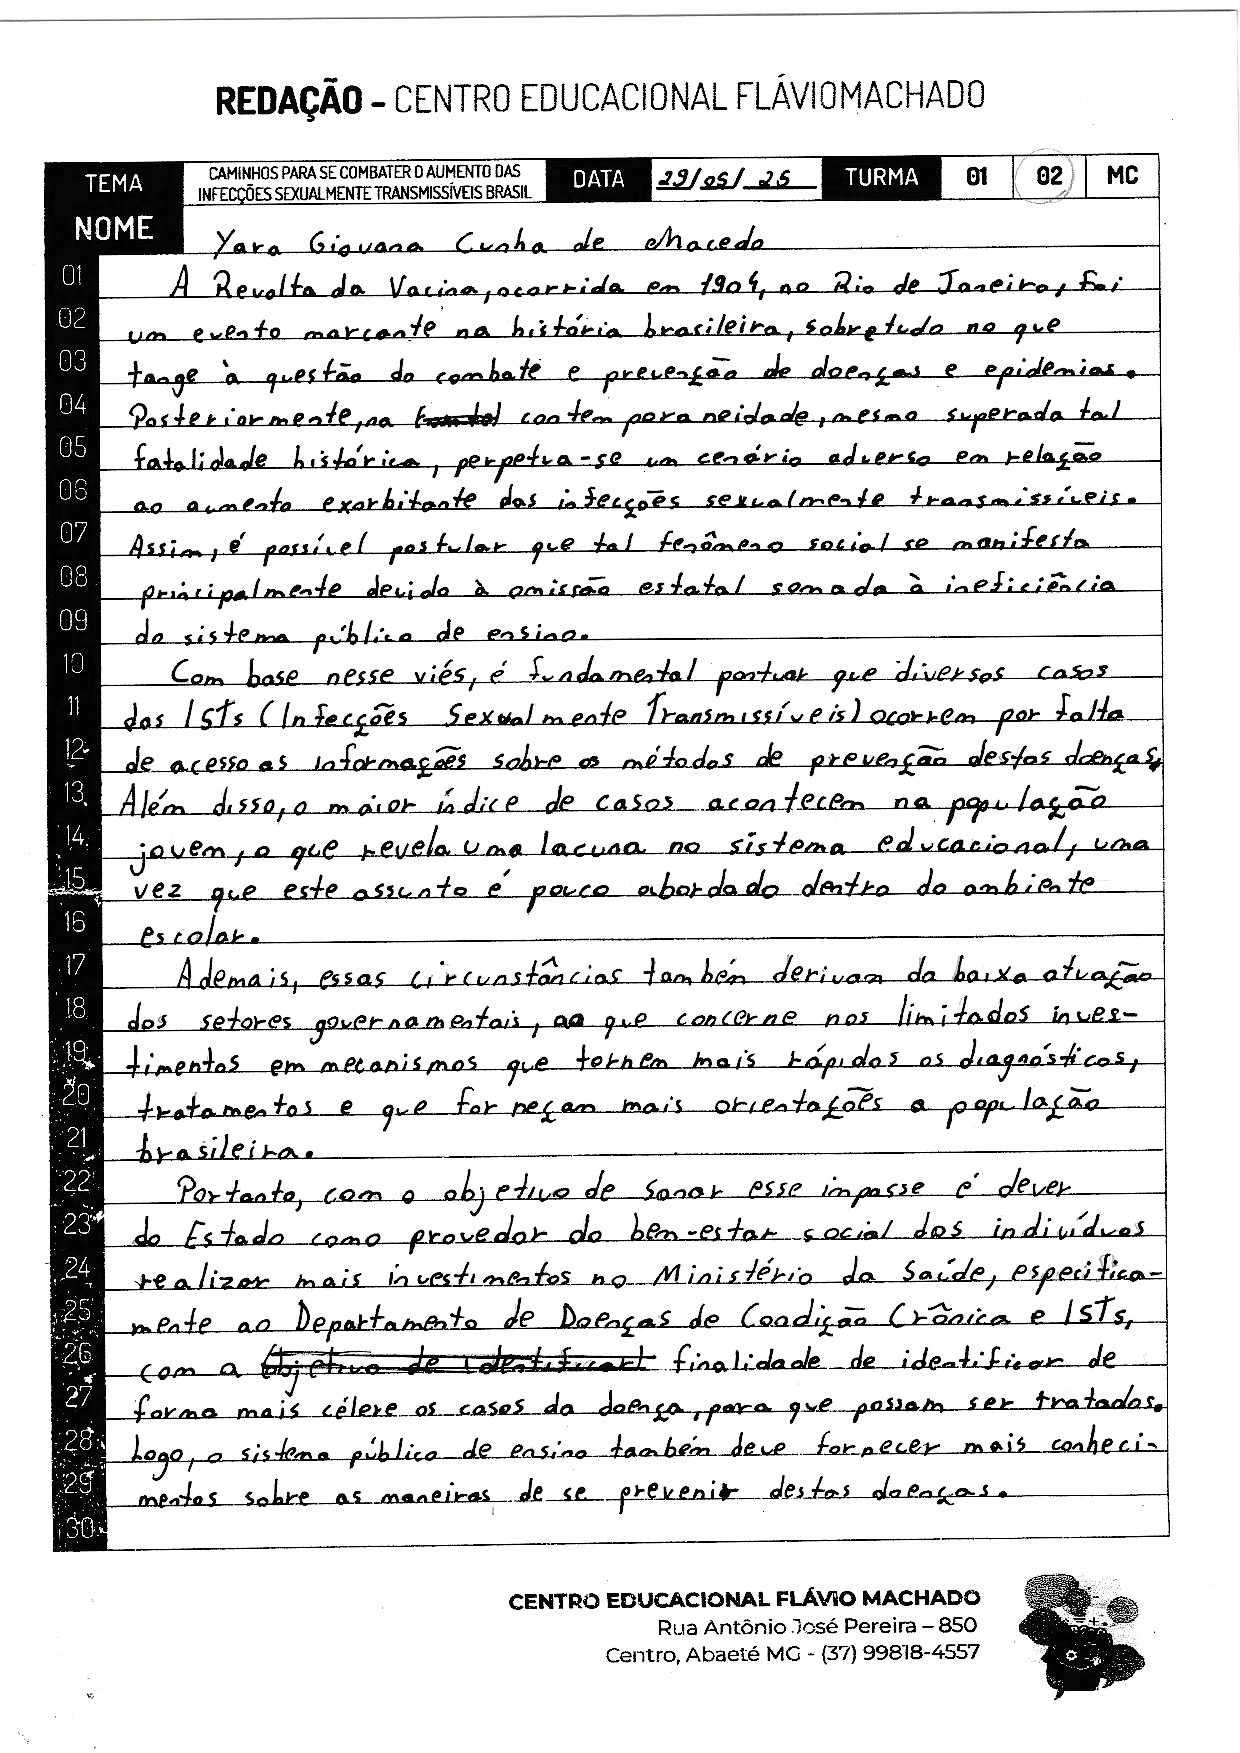 REDAÇÃO - CENTRO EDUCACIONAL FLÁVIOMACHADO
TEMA
CAMINHOS PARA SE COMBATER O AUMENTO DAS
INFECÇÕES SEXUALMENTE TRANSMISSÍVEIS BRASIL
DATA 29/05/25 TURMA 01 02 MC
NOME Yara Giovana Cunha de Macedo
01 A Revolta da Vacina, ocorrida em 1904, no Rio de Janeiro, foi
02 um evento marcante na história brasileira, sobretudo no que
03 tange à questão do combate e prevenção de doenças e epidemias.
04 Posteriormente, na contemporaneidade, mesmo superada tal
05 fatalidade histórica, perpetua-se um cenário adverso em relação
06 ao aumento exorbitante das infecções sexualmente transmissíveis.
07 Assim, é possível postular que tal fenômeno social se manifesta
08 principalmente devido à omissão estatal somada à ineficiência
09 do sistema público de ensino.
10 Com base nesse viés, é fundamental pontuar que diversos casos
11 das ISTs (Infecções Sexualmente Transmissíveis) ocorrem por falta
12 de acesso as informações sobre os métodos de prevenção destas doenças.
13 Além disso, o maior índice de casos acontecem na população
14 jovem, o que revela uma lacuna no sistema educacional, uma
15 vez que este assunto é pouco abordado dentro do ambiente
16 escolar.
17 Ademais, essas circunstâncias também derivam da baixa atuação
18 dos setores governamentais, ao que concerne nos limitados inves-
19 timentos em mecanismos que tornem mais rápidos os diagnósticos,
20 tratamentos e que forneçam mais orientações a população
21 brasileira.
22 Portanto, com o objetivo de sanar esse impasse é dever
23 do Estado como provedor do bem-estar social dos indivíduos
24 realizar mais investimentos no Ministério da Saúde, especifica-
25 mente ao Departamento de Doenças de Condição Crônica e ISTs,
26 com a objetivo de identificar finalidade de identificar de
27 forma mais célere os casos da doença, para que possam ser tratados.
28 Logo, o sistema público de ensino também deve fornecer mais conheci-
29 mentos sobre as maneiras de se prevenir destas doenças.
30
CENTRO EDUCACIONAL FLÁVIO MACHADO
Rua Antônio José Pereira – 850
Centro, Abaeté MG - (37) 99818-4557